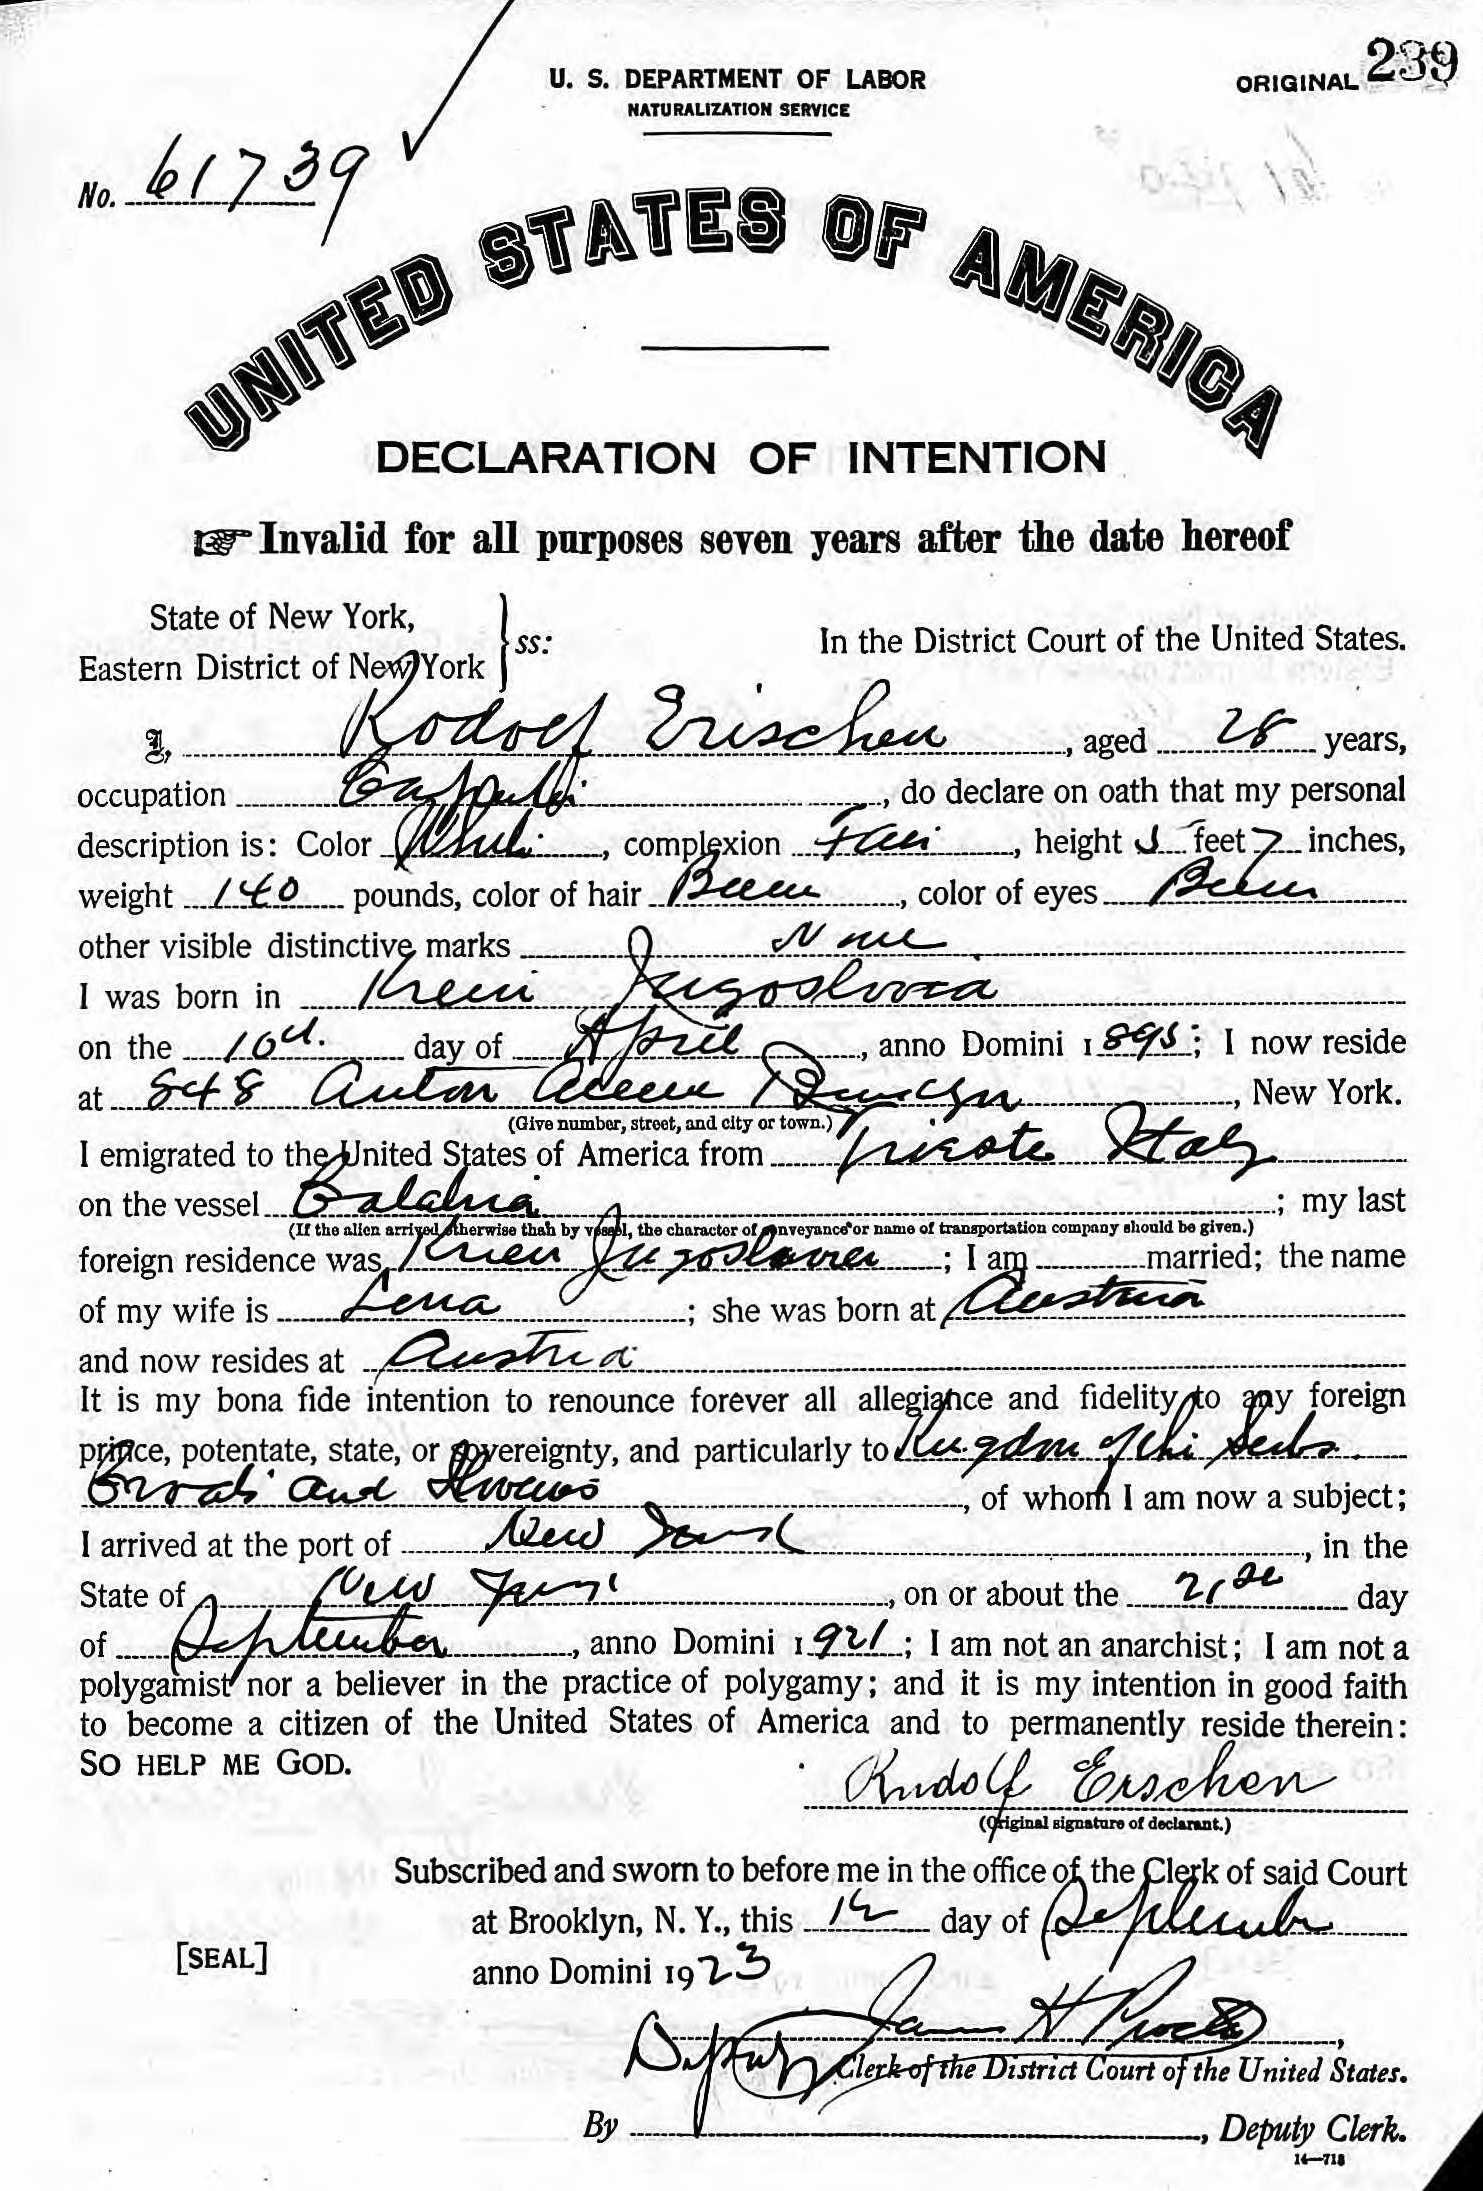 U. S. DEPARTMENT OF LABOR
NATURALIZATION SERVICE
ORIGINAL 239
No. 61739
UNITED STATES OF AMERICA
DECLARATION OF INTENTION
Invalid for all purposes seven years after the date hereof
State of New York,
Eastern District of New York
ss:
In the District Court of the United States.
I, Rodolf Erschen, aged 28 years,
occupation, do declare on oath that my personal
description is: Color White, complexion Fair, height 5 feet 7 inches,
weight 140 pounds, color of hair Brown, color of eyes Brown
other visible distinctive marks None
I was born in Jugoslovia
on the 10th. day of April, anno Domini 1895; I now reside
at 848, New York.
(Give number, street, and city or town.)
I emigrated to the United States of America from Trieste Italy
on the vessel Calabria; my last
(If the alien arrived otherwise than by vessel, the character of conveyance or name of transportation company should be given.)
foreign residence was Jugoslavia; I am married; the name
of my wife is Lena; she was born at Austria
and now resides at Austria
It is my bona fide intention to renounce forever all allegiance and fidelity to any foreign
prince, potentate, state, or sovereignty, and particularly to Kingdom of the Serbs
Croats and Slovenes, of whom I am now a subject;
I arrived at the port of New York, in the
State of New York, on or about the 21st day
of September, anno Domini 1921; I am not an anarchist; I am not a
polygamist nor a believer in the practice of polygamy; and it is my intention in good faith
to become a citizen of the United States of America and to permanently reside therein:
SO HELP ME GOD.
Rudolf Erschen
(Original signature of declarant.)
Subscribed and sworn to before me in the office of the Clerk of said Court
at Brooklyn, N. Y., this day of September
[SEAL]
anno Domini 1923
Deputy James H
Clerk of the District Court of the United States.
By, Deputy Clerk.
14—718